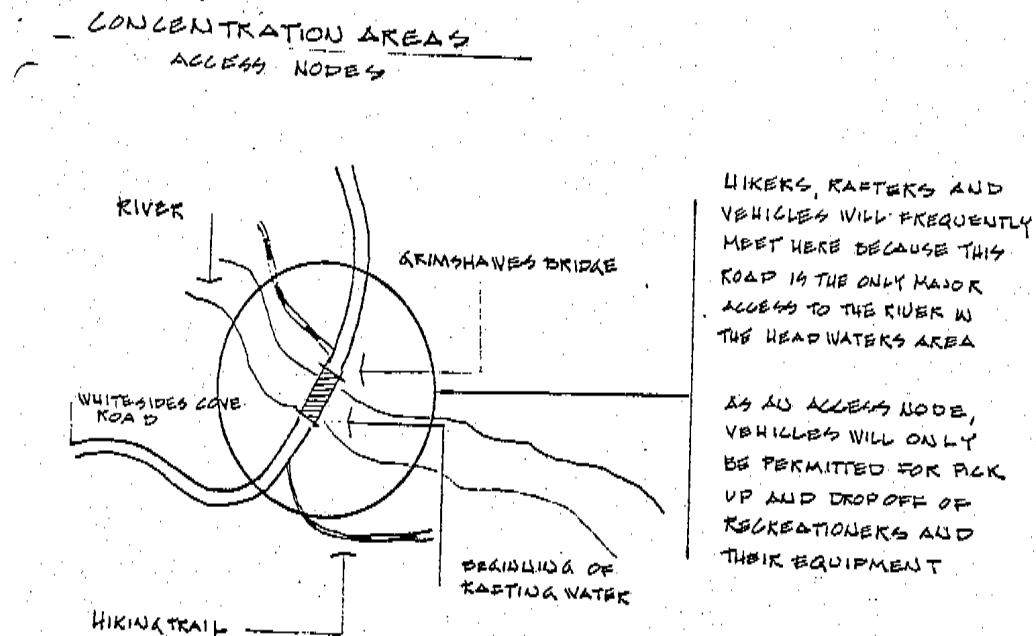 CONCENTRATION AREAS
ACCESS NODES
RIVER
GRIMSHAWES BRIDGE
WHITESIDES COVE
ROAD
BEGINNING OF
RAFTING WATER
HIKING TRAIL
HIKERS, RAFTERS AND
VEHICLES WILL FREQUENTLY
MEET HERE BECAUSE THIS
ROAD IS THE ONLY MAJOR
ACCESS TO THE RIVER IN
THE HEADWATERS AREA
AS AN ACCESS NODE,
VEHICLES WILL ONLY
BE PERMITTED FOR PICK
UP AND DROP OFF OF
RECREATIONERS AND
THEIR EQUIPMENT